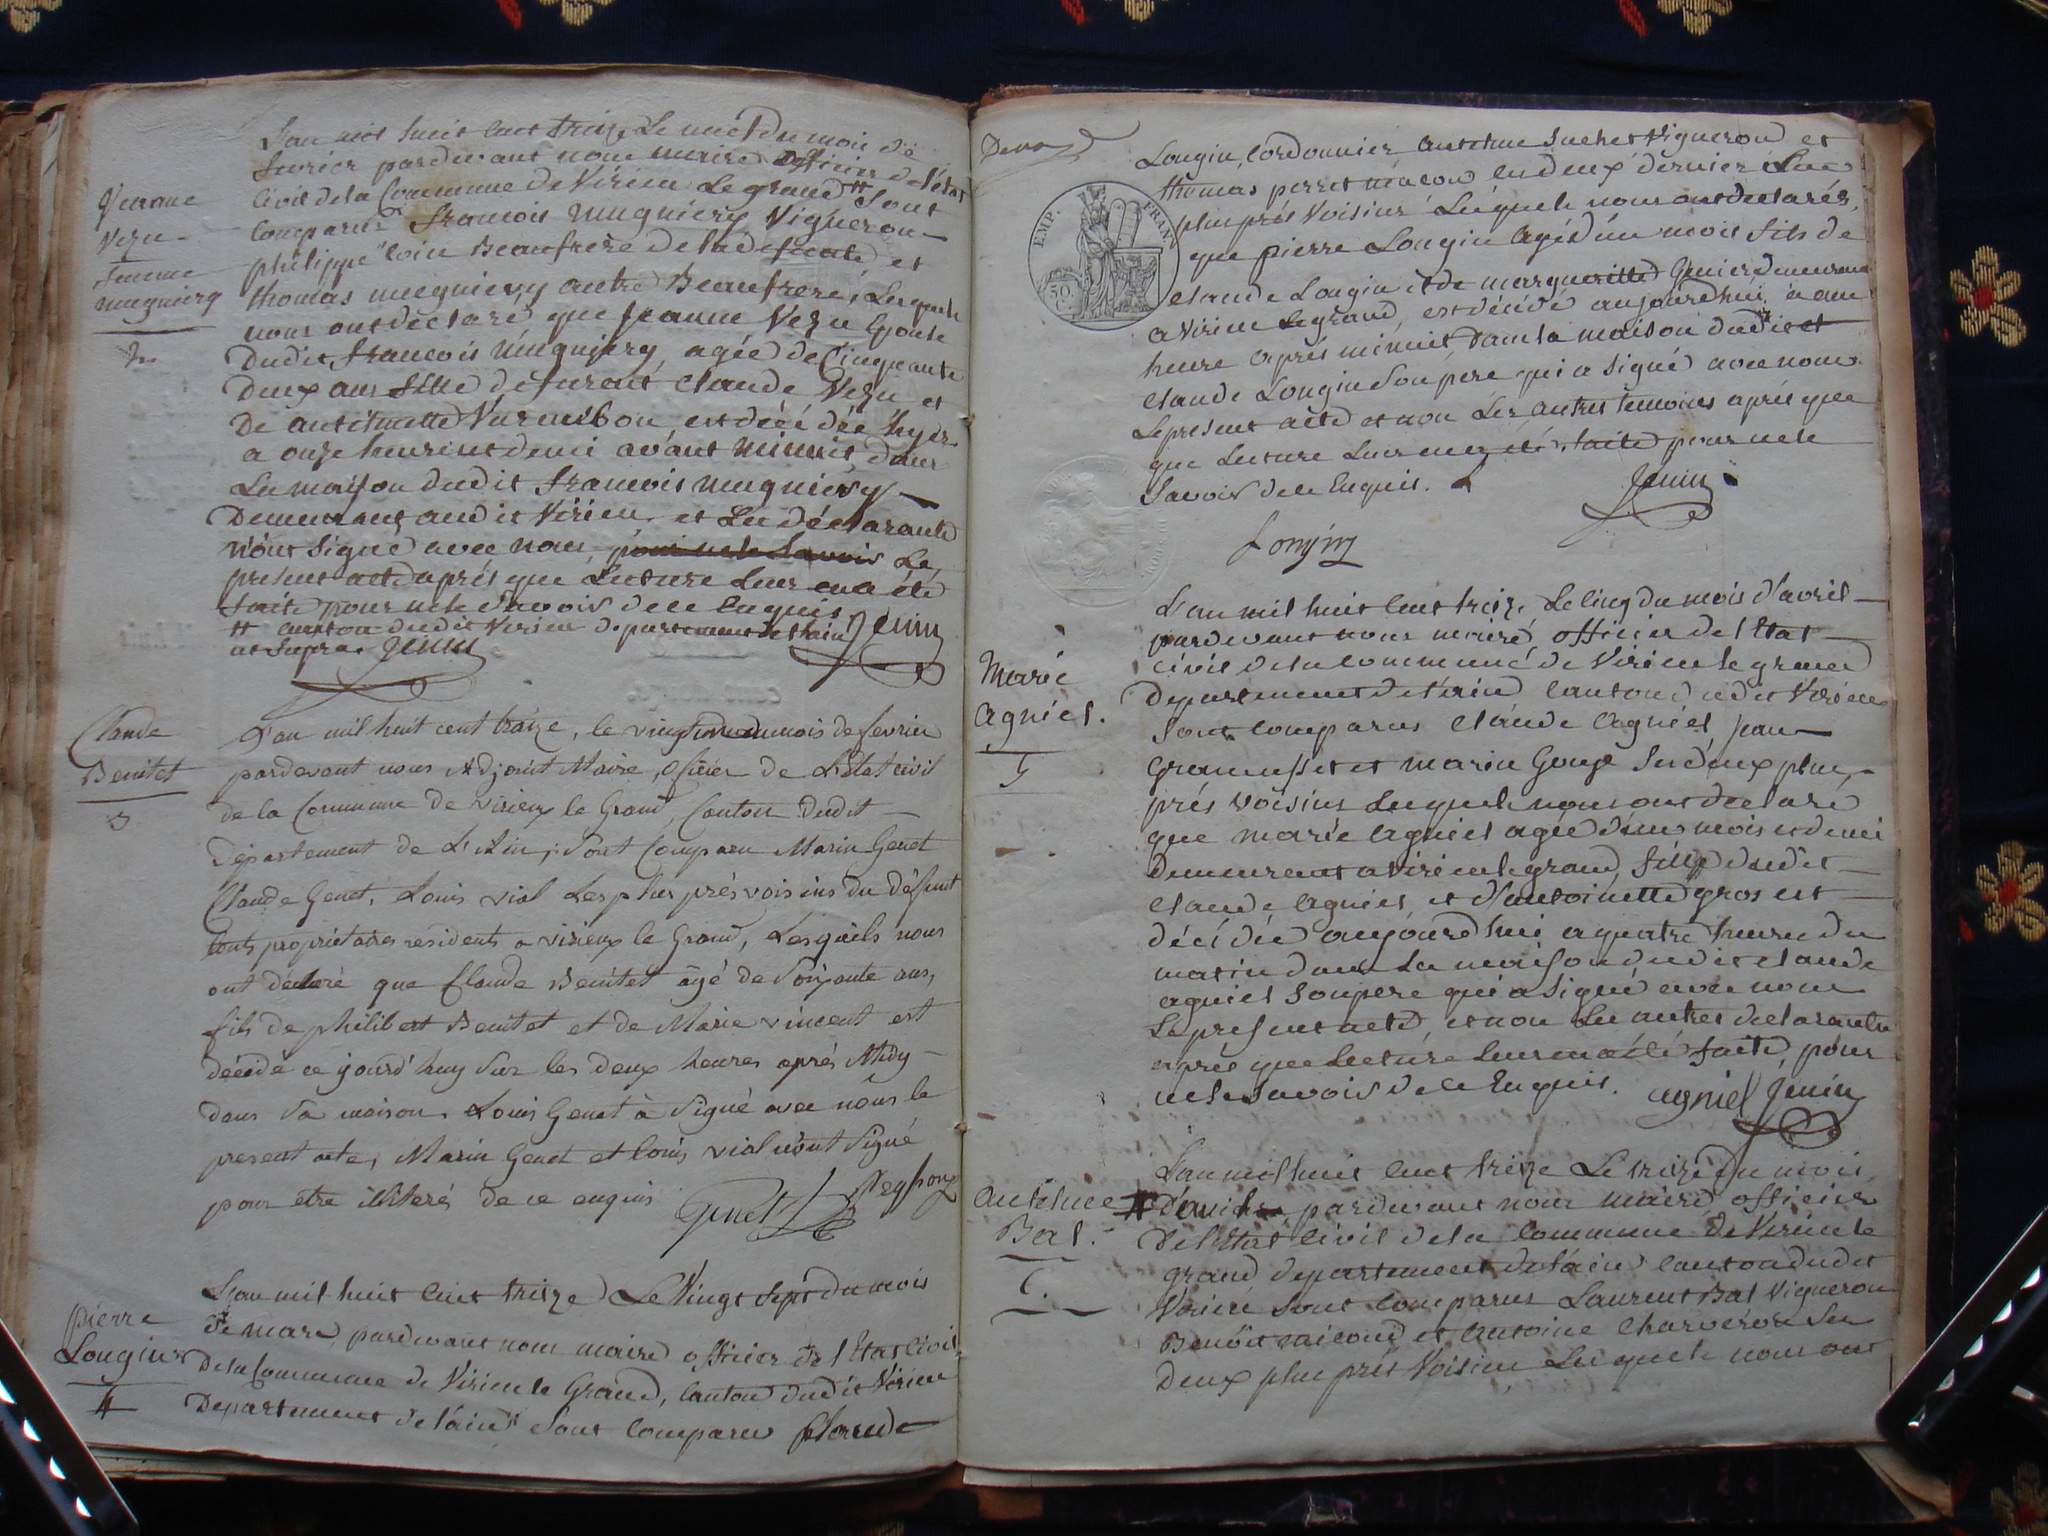 L'an mil huit cent treize Le neuf du mois de
fevrier pardevant nous maire officier de l'état
civil de la Commune de Virieu Le grand # Sont
comparus francois mugniery Vigneron
philippe Beaufrere de la défunte et
thomas mugniery autre Beaufrere, Lesquels
nous ont déclaré que jeanne Vezu Epouse
Dudit francois mugniery, agée de Cinquante
Deux ans fille defurent Claude Vezu et
De antoinette est décédée hyer
a onze heures et demi avant minuit dans
La maison dudit francois mugniery
Demeurant audit Virieu, et Les déclarants
n'ont Signé avec nous, pour ne le Savoir Le
present acte après que Lecture Leur en a été
faite pour ne le Savoir de ce Enquis Jenin
# canton dudit Virieu departement de l'ain
ut Supra. Jenin
Jeanne
Vezu
femme
mugniery
2
Claude
Benitet
3
L'an mil huit cent traize, le vingt du mois de fevrier
pardevant nous Adjoint Maire, Oficier de L'état civil
de la Commune de virieux le Grand, Canton dudit
Département de L'Ain, Sont Comparu Marin Genet
Claude Genet, Louis vial Les plus prés voisins du défunt
touts propriétaires résidents a virieux le Grand, Lesquels nous
ont déclaré que Claude Benitet âgé de Soixante ans,
fils de philibert Benitet et de Marie vincent est
décédé ce jourd'huy Sur les deux heures après Midy
dans Sa maison. Louis Genet à Signé avec nous le
present acte, Marin Genet et Louis vial n'ont Signé
pour etre illiterés de ce enquis
Genet
pierre
Longin
4
L'an mil huit cent treize Le Vingt Sept du mois
De mars, pardevant nous maire officier de l'Etat Civil
De la Commune de Virieu le Grand, Canton dudit Virieu
Departement de l'ain Sont Comparus Claude
Longin, Cordonnier, antelme Suchet Vigneron et
thomas perret macon les deux dernier Les
plus près Voisins Lesquels nous ont declarés,
que pierre Longin agé d'un mois fils de
claude Longin et de margueritte Genier demeurant
a Virieu Legrand, est décédé aujourdhui à une
heure après minuit dans la maison dudit
claude Longin Son père qui a Signé avec nous
Le present acte et non Les autres temoins après que
que Lecture Leur en a été faite pour ne le
Savoir de ce Enquis. Jenin
Longin
EMP. FRANÇ.
50
Marie
agniel.
5
L'an mil huit cent treize, Le cinq du mois d'avril
pardevant nous maire, officier de l'Etat
civil de la commune de Virieu le grand
Departement de l'ain canton dudit Virieu
Sont comparus Claude agniel, jean
et marin Gouje Les deux plus
prés voisins Lesquels nous ont declaré
que marie agniel agée d'un mois et demi
Demeurent a Virieu le grand, fille dudit
claude agniel et d'antoinette gros est
décédée aujourdhui a quatre heures du
matin dans La maison dudit claude
agniel Son pere qui a Signé avec nous
Le present acte, et non Les autres declarants
après que Lecture Leur en a été faite, pour
ne le Savoir de ce Enquis. agniel Jenin
antelme
Bal.
L'an mil huit cent treize Le treize du mois
d'avril pardevant nous maire officier
De l'Etat civil de la Commune de Virieu le
grand departement de l'ain canton dudit
Virieu Sont comparus Laurent Bal Vigneron
Benoit et antoine Charveron Les
Deux plus près Voisins Lesquels nous ont